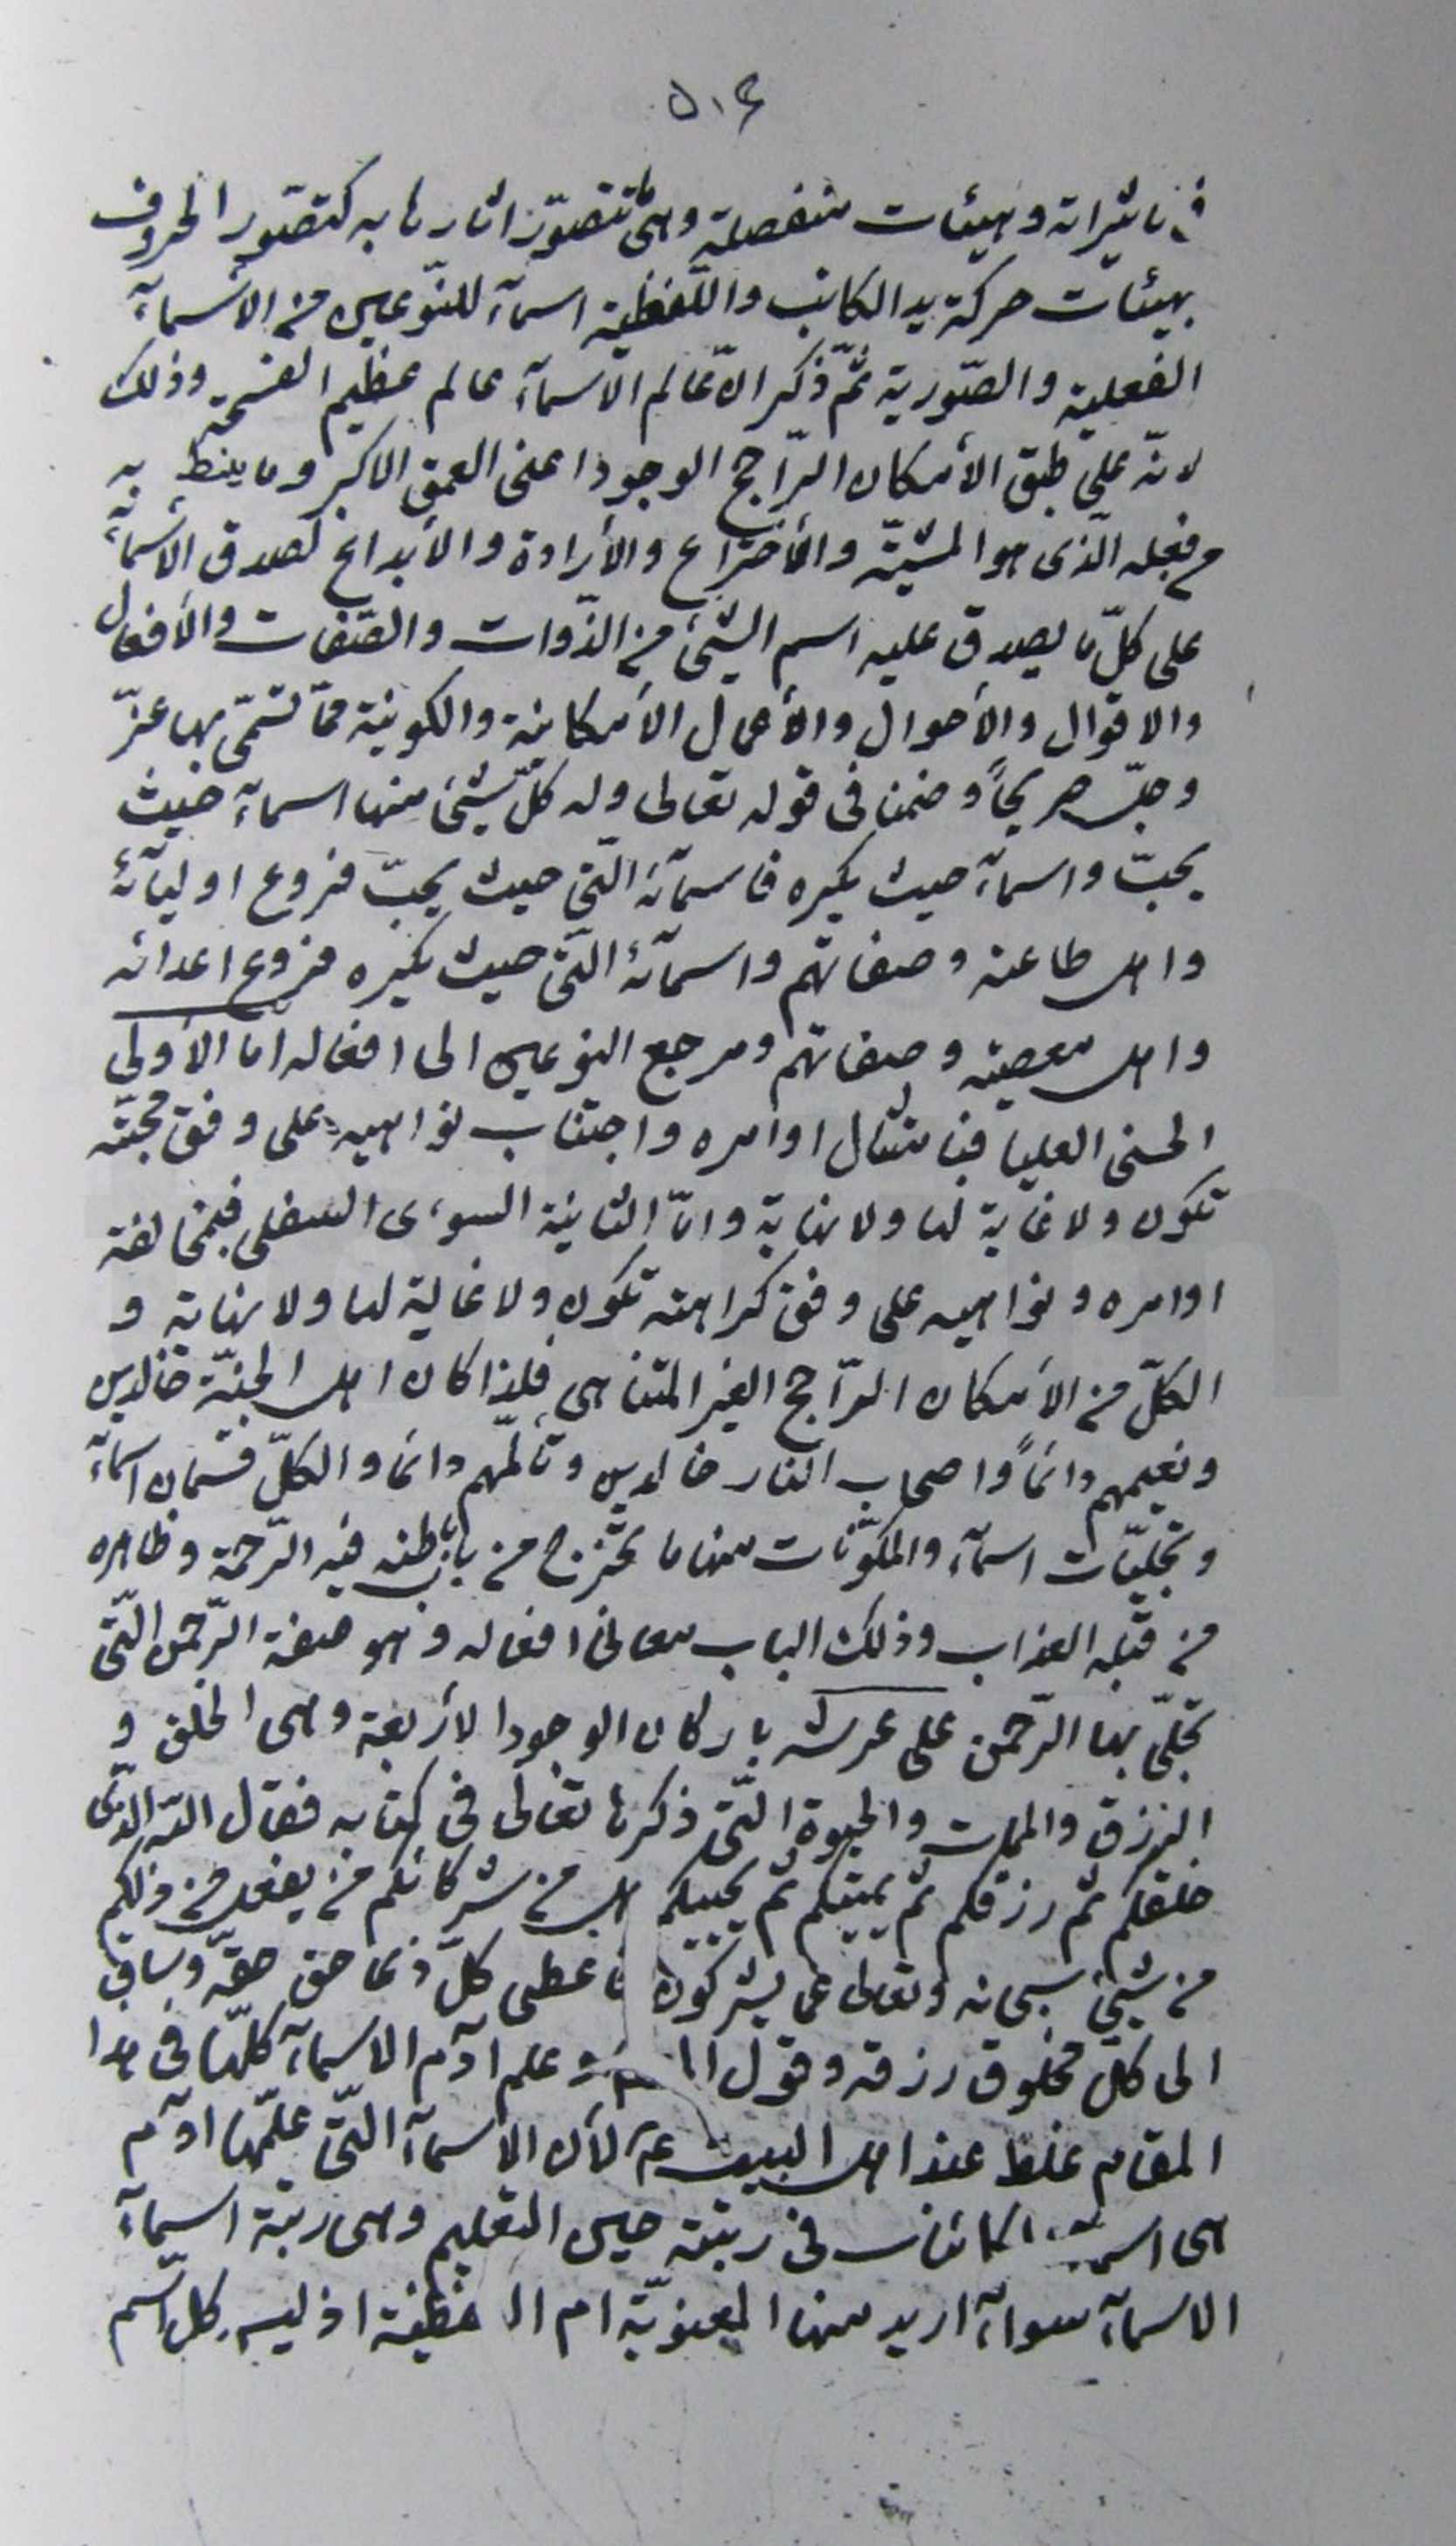 ٥٠٤
في تاثيراته وهيئات منفصلة وهى تتصوّر اثارها به كتصوّر الحروف
بهيئات حركة يد الكاتب واللّفظية اسمآء للنّوعين من الاسمآء
الفعلية والصّورية ثمّ ذكر انّ عالم الاسمآء عالم عظيم الفسحة وذلك
لانّه على طبق الأمكان الرّاجح الوجود اعنى العمق الاكبر وما ينط به
من فعله الّذى هو المشيّة والأختراع والأرادة والأبداع لصدق الأسمآء
على كلّ ما يصدق عليه اسم الشّئ من الذّوات والصّفات والأفعال
والاقوال والأحوال والأعمال الأمكانية والكونية ممّا تسمّى بها عزّ
وجلّ صريحاً وضمنا فى قوله تعالى وله كلّ شيئ منها اسمآء حيث
يحبّ واسمآء حيث يكره فاسمآئه الّتى حيث يحبّ فروع اوليآئه
واهل طاعته وصفاتهم واسمآئه الّتى حيث يكره فروع اعدائه
واهل معصيته وصفاتهم ومرجع النوعين الى افعاله اما الأولى
الحسنى العليا فبامتثال اوامره واجتناب نواهيه على وفق محبّته
تكون ولا غاية لها ولا نهاية وامّا الثانية السوءى السفلى فبمخالفة
اوامره ونواهيه على وفق كراهته تكون ولا غاية لها ولا نهاية و
الكلّ من الأمكان الرّاجح الغير المتناهى فلذا كان اهل الجنّة خالدين
ونعيمهم دائماً واصحاب النار خالدين وتألّمهم دائما والكلّ قسمان اسمآء
وتجلّيات اسمآء والمكوّنات منها ما يخرج من باب باطنه فيه الرّحمة وظاهره
من قبله العذاب وذلك الباب معانى افعاله وهو صفة الرّحمن الّتى
تجلّى بها الرّحمن على عرشه باركان الوجود الأربعة وهى الخلق و
الرزق والممات والحيوة الّتى ذكرها تعالى فى كتابه فقال اللّه الّذى
خلقكم ثم رزقكم ثم يميتكم ثم يحييكم هل من شركائكم من يفعل من ذلكم
من شيئ سبحانه وتعالى عما يشركون فاعطى كلّ ذى حق حقّه وساق
الى كلّ مخلوق رزقه وقول وعلم آدم الاسمآء كلّها فى هذا
المقام غلط عند اهل البيت ع لأن الأسمآء الّتى علّمها آدم
هى اسمآء الكائنات فى رتبة حين التعليم وهى رتبة اسمآء
الاسمآء سوآء اريد منها المعنويّة ام اللفظية اذ ليس كل اسم